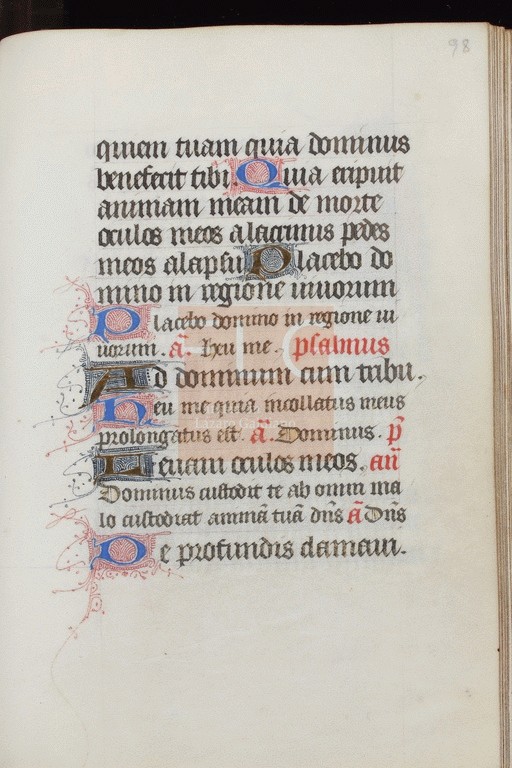 98
quiem tuam quia dominus
benefecit tibi Quia eripuit
animam meam de morte
oculos meos a lacrimis pedes
meos a lapsu Placebo do
mino in regione uiuorum
Placebo domino in regione ui
uorum. a̅. Heu me. psalmus
Ad dominum cum tribu.
Heu me quia incollatus meus
prolongatus est. a̅. Dominus. p̅
Leuaui oculos meos. an̅
Dominus custodit te ab omni ma
lo custodiat animā tuā dn̅s a̅ Dn̅s
De profundis clamaui.